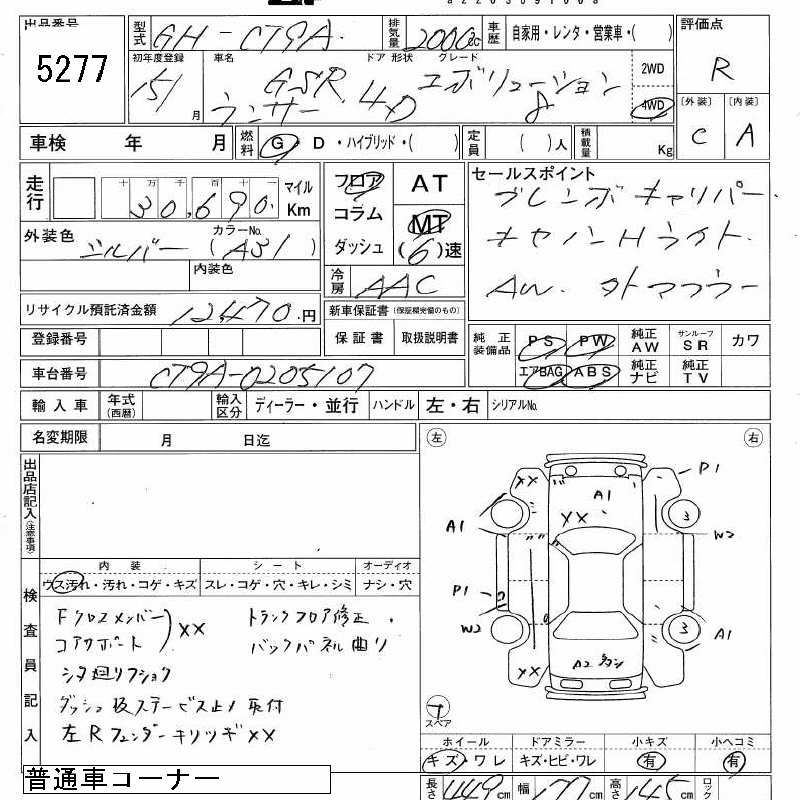 出品番号
5277
型式
GH-CT9A
排気量
2000cc
車歴
自家用・レンタ・営業車・( )
評価点
R
初年度登録
15/
月
車名
ランサー
GSR
ドア 形状
4D
グレード
エボリューション
8
2WD
4WD
〔外装〕
C
〔内装〕
A
車検 年 月
燃料
G・D・ハイブリッド・( )
定員
( )人
積載量
Kg
走行
十 万 千 百 十 一
30,690
マイル
Km
フロア
コラム
ダッシュ
AT
MT
(6)速
セールスポイント
ブレンボキャリパー
キセノンHライト
AW. 外マフラー
外装色
シルバー
カラーNo.
(A31)
内装色
冷房
AAC
リサイクル預託済金額
12,470.円
新車保証書(保証欄完備のもの)
保証書 取扱説明書
登録番号
純正装備品
PS PW
エアBAG ABS
純正AW
純正ナビ
サンルーフ
SR
純正TV
カワ
車台番号
CT9A-0205107
輸入車
年式(西暦)
輸入区分
ディーラー・並行
ハンドル
左・右
シリアルNo.
名変期限 月 日迄
出品店記入(注意事項)
左
右
内装
シート
オーディオ
ウス汚れ・汚れ・コゲ・キズ
スレ・コゲ・穴・キレ・シミ
ナシ・穴
検査員記入
Fクロスメンバー
コアサポート
XX
トランクフロア修正.
バックパネル曲り
シタ廻リフショク
ダッシュ板ステービス止メ 取付
左RフェンダーキリツギXX
XX
A1
XX
P1
3
A1
W2
P1
W2
3
A1
XX
A2
スペア
ホイール
キズ・ワレ
ドアミラー
キズ・ヒビ・ワレ
小キズ
有
小ヘコミ
有
普通車コーナー
長さ
449cm
幅
177cm
高さ
145cm